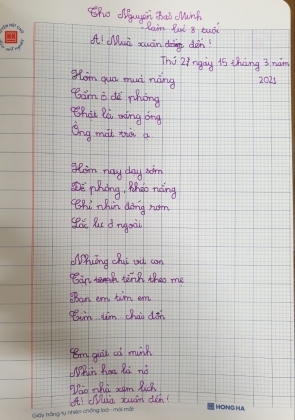 Thơ Nguyễn Bảo Minh
làm lúc 8 tuổi
A! Mùa xuân đến!
Thứ 2 ngày 15 tháng 3 năm
2021
Hôm qua mưa nắng
Cầm ô đề phòng
Thật là vàng óng
Ông mặt trời ạ
Hôm nay dạy sớm
Đề phòng, khéo nắng
Chị nhìn đống rơm
Lắc lư ở ngoài
Những chú vịt con
Tập tễnh theo mẹ
Ban em tìm em
Tìm tìm chơi đốn
Em giật cả mình
Nhìn hoa lá nở
Vào nhà xem lịch
A! Mùa xuân đến!
Giấy trắng tự nhiên chống loá - mỏi mắt
HONG HA